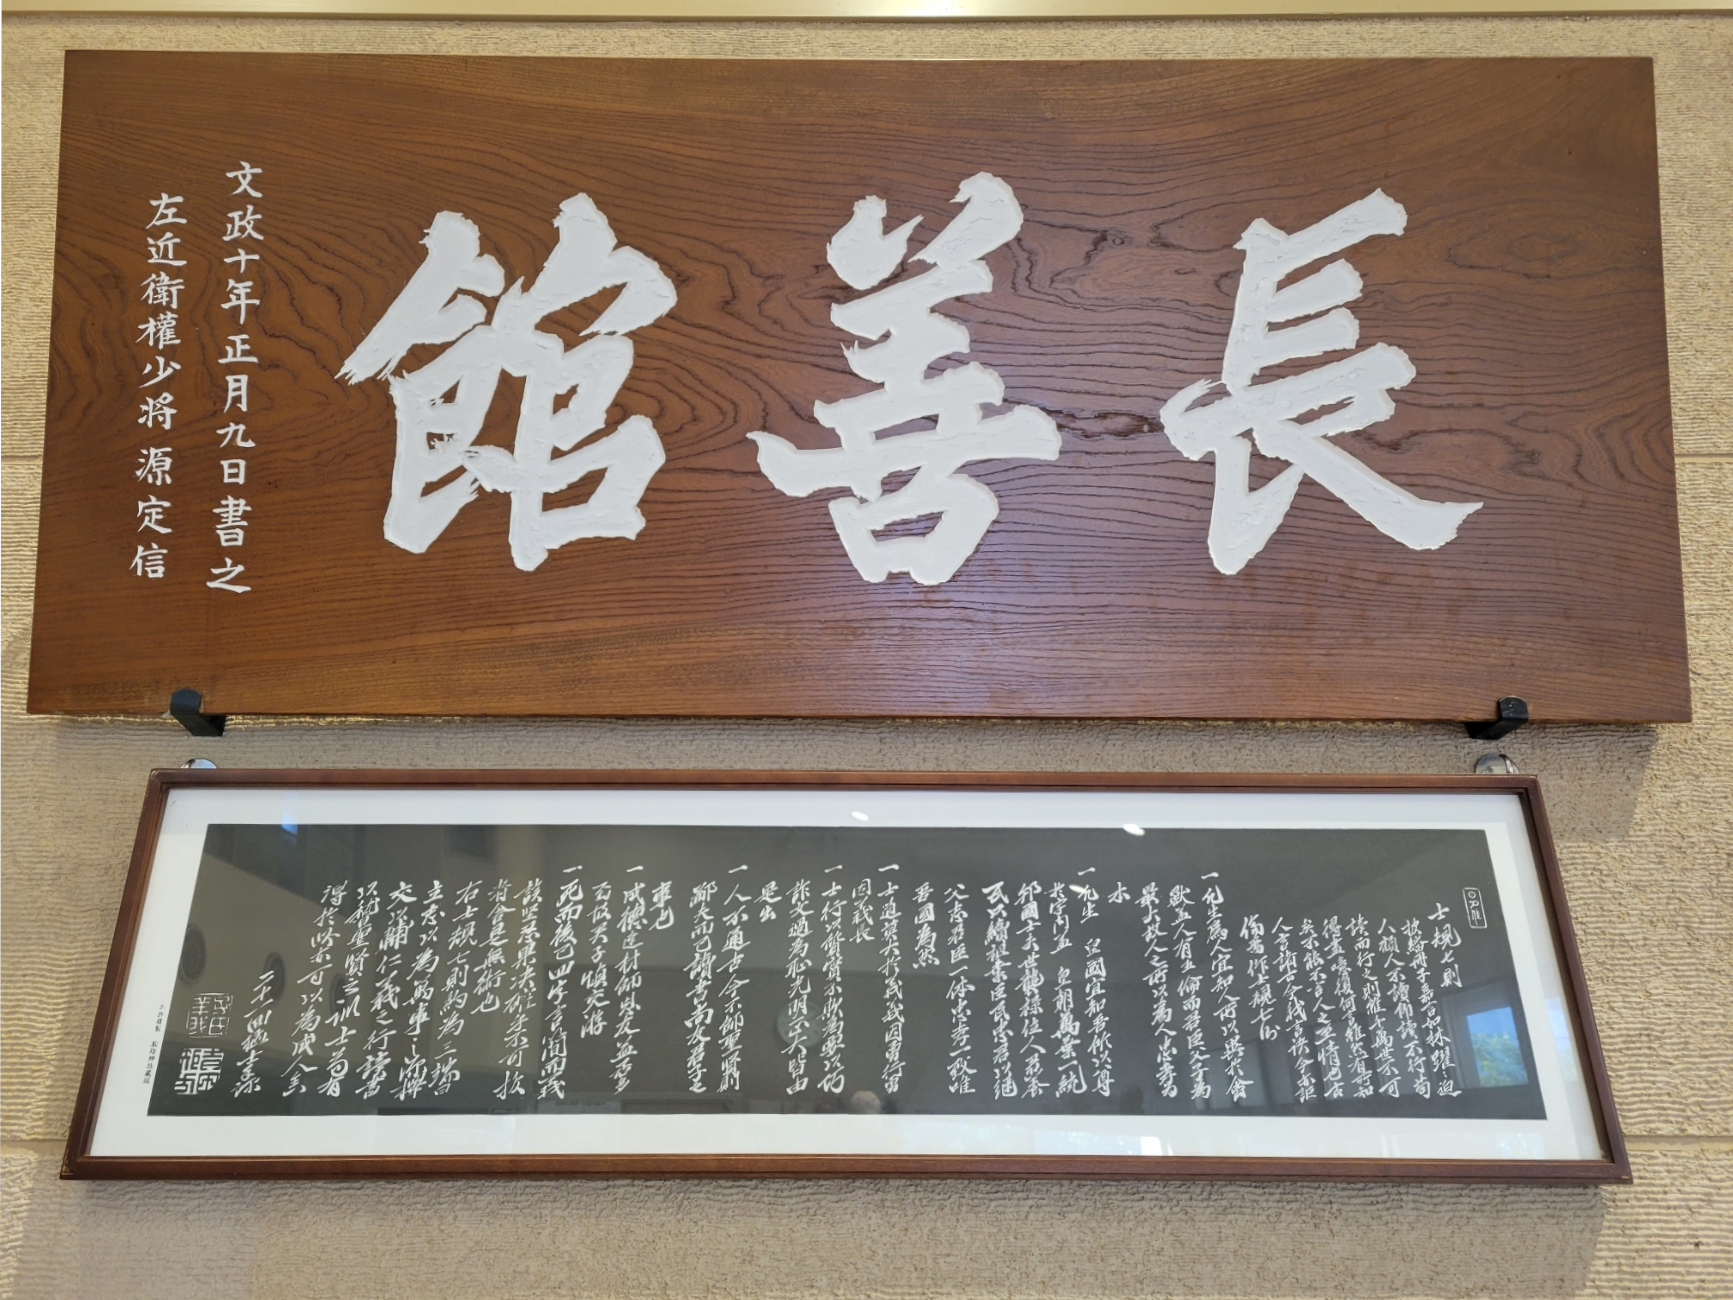 長善館
文政十年正月九日書之
左近衛權少将源定信
士規七則
披繙冊子嘉言如林躍々迫
人顧人不讀即讀不行苟
讀而行之則雖千萬世不可
得盡噫復何言雖然有所知
矣不能不言人之至情也古
人言諸古今我言諸今亦詎
傷焉作士規七則
一凡生爲人宜知人所以異於禽
獣蓋人有五倫而君臣父子爲
最大故人之所以為人忠孝為
本
一凡生 皇國宜知吾所以尊
於宇内蓋 皇朝萬葉一統
邦國士夫世襲禄位人君養
民以續祖業臣民忠君以継
父志君臣一体忠孝一致唯
吾國為然
一士道莫大於義義因勇行勇
因義長
一士行以質實不欺為要以巧
詐文過為恥光明正大皆由
是出
一人不通古今不師聖賢則
鄙夫而已讀書尚友君子之
事也
一成德達材師恩友益居多
焉故君子慎交游
一死而後已四字言簡而義
該堅忍果決確乎不可拔
者舍是無術也
右士規七則約為三端曰
立志以為萬事之源擇
交以輔仁義之行讀書
以稽聖賢之訓士苟有
得於此亦可以為成人矣
二十一回猛士添